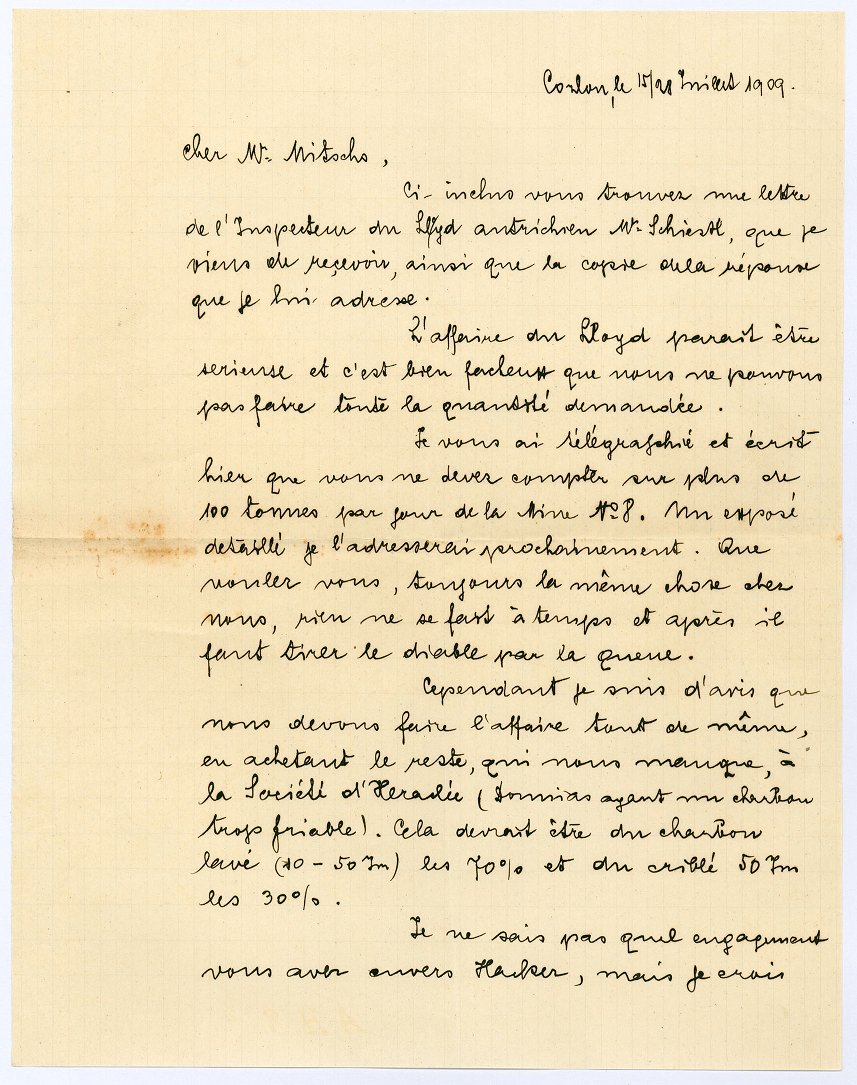 Cozlou, le 15/28 Juillet 1909.
cher Mr. Mitscho,
Ci-inclus vous trouvez une lettre
de l'Inspecteur du Lloyd autrichien Mr. Schiestl, que je
viens de reçevoir, ainsi que la copie de la réponse
que je lui adresse.
L'affaire du Lloyd parait être
serieuse et c'est bien facheux que nous ne pouvons
pas faire toute la quantité demandée.
Je vous ai télégraphié et écrit
hier que vous ne devez compter sur plus de
100 tonnes par jour de la Mine No 8. Un exposé
detaillé je l'adresserai prochainement. Que
voulez vous, toujours la même chose chez
nous, rien ne se fait à temps et après il
faut tirer le diable par la queue.
Cependant je suis d'avis que
nous devons faire l'affaire tout de même,
en achetant le reste, qui nous manque, à
la Société d'Heraclée (Dounias ayant un charbon
trop friable). Cela devrait être du charbon
lavé (10-50 Jm) les 70% et du criblé 50 Jm
les 30%.
Je ne sais pas quel engagement
vous avez envers Hacker, mais je crois